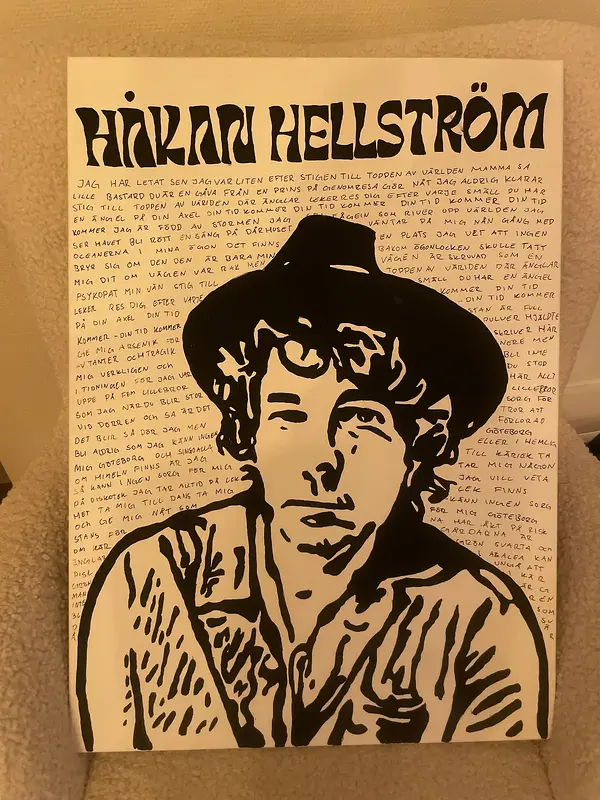 HÅKAN HELLSTRÖM
JAG HAR LETAT SEN JAG VAR LITEN EFTER STIGEN TILL TOPPEN AV VÄRLDEN MAMMA SA
LILLE BASTARD DU ÄR EN GÅVA FRÅN EN PRINS PÅ GENOMRESA GÖR NÅT JAG ALDRIG KLARAR
STIG TILL TOPPEN AV VÄRLDEN DÄR ÄNGLAR LEKER RES DIG EFTER VARJE SMÄLL DU HAR
EN ÄNGEL PÅ DIN AXEL DIN TID KOMMER DIN TID KOMMER DIN TID KOMMER DIN TID
KOMMER JAG ÄR FÖDD AV STORMEN JAG FÅGELN SOM RIVER UPP VÄRLDEN JAG
SER HAVET BLI RÖTT EN SÅNG PÅ DÅRHUSET VÄNTAR PÅ MIG NÅN GÅNG MED
OCEANERNA I MINA ÖGON DET FINNS EN PLATS JAG VET ATT INGEN
BRYR SIG OM DEN DEN ÄR BARA MIN BAKOM ÖGONLOCKEN SKULLE TATT
MIG DIT OM VÄGEN VAR RAK MEN VÄGEN ÄR SKRUVAD SOM EN
PSYKOPAT MIN VÄN STIG TILL TOPPEN AV VÄRLDEN DÄR ÄNGLAR
LEKER RES DIG EFTER VARJE SMÄLL DU HAR EN ÄNGEL
PÅ DIN AXEL DIN TID KOMMER DIN TID
KOMMER - DIN TID KOMMER DIN TID KOMMER
GE MIG ARSENIK FÖR STAN ÄR FULL
AV TANTER OCH TRAGIK PULVER HJÄLPTE
MIG VERKLIGEN OCH SKRIVER HÄR
I TIDNINGEN FÖR JAG VAR NERE MEN
UPPE PÅ FEM LILLEBROR BLI INTE
SOM JAG NÄR DU BLIR STOR DU STOP
VID DÖRREN OCH SA ÄR DET HÄR ALLT
DET BLIR SÅ DÄR JAG MEN LILLEBROR
BLI ALDRIG SOM JAG KÄNN INGEN SORG FÖR
MIG GÖTEBORG OCH SINGOALLA TROR ATT
OM HIMELN FINNS ÄR JAG FÖRLORAD
SÅ KÄNN INGEN SORG FÖR MIG GÖTEBORG
PÅ DISKOTEK JAG TAR ALLTID PÅ LEK ELLER I HEMLIG
HET TA MIG TILL DANS TA MIG TILL KÄRLEK TA
OCH GE MIG NÅT SOM TAR MIG NÅGON
STANS FÖR JAG VILL VETA
OM KÄR LEK FINNS
ÄNGLAR KÄNN INGEN SORG
FÖR MIG GÖTEBORG
NA HAR ÅKT PÅ RISK
GÅRDARNA ÄR
SVARTA OCH
KAN
UNGA ATT
KÄR
ÄR
EN
SOM